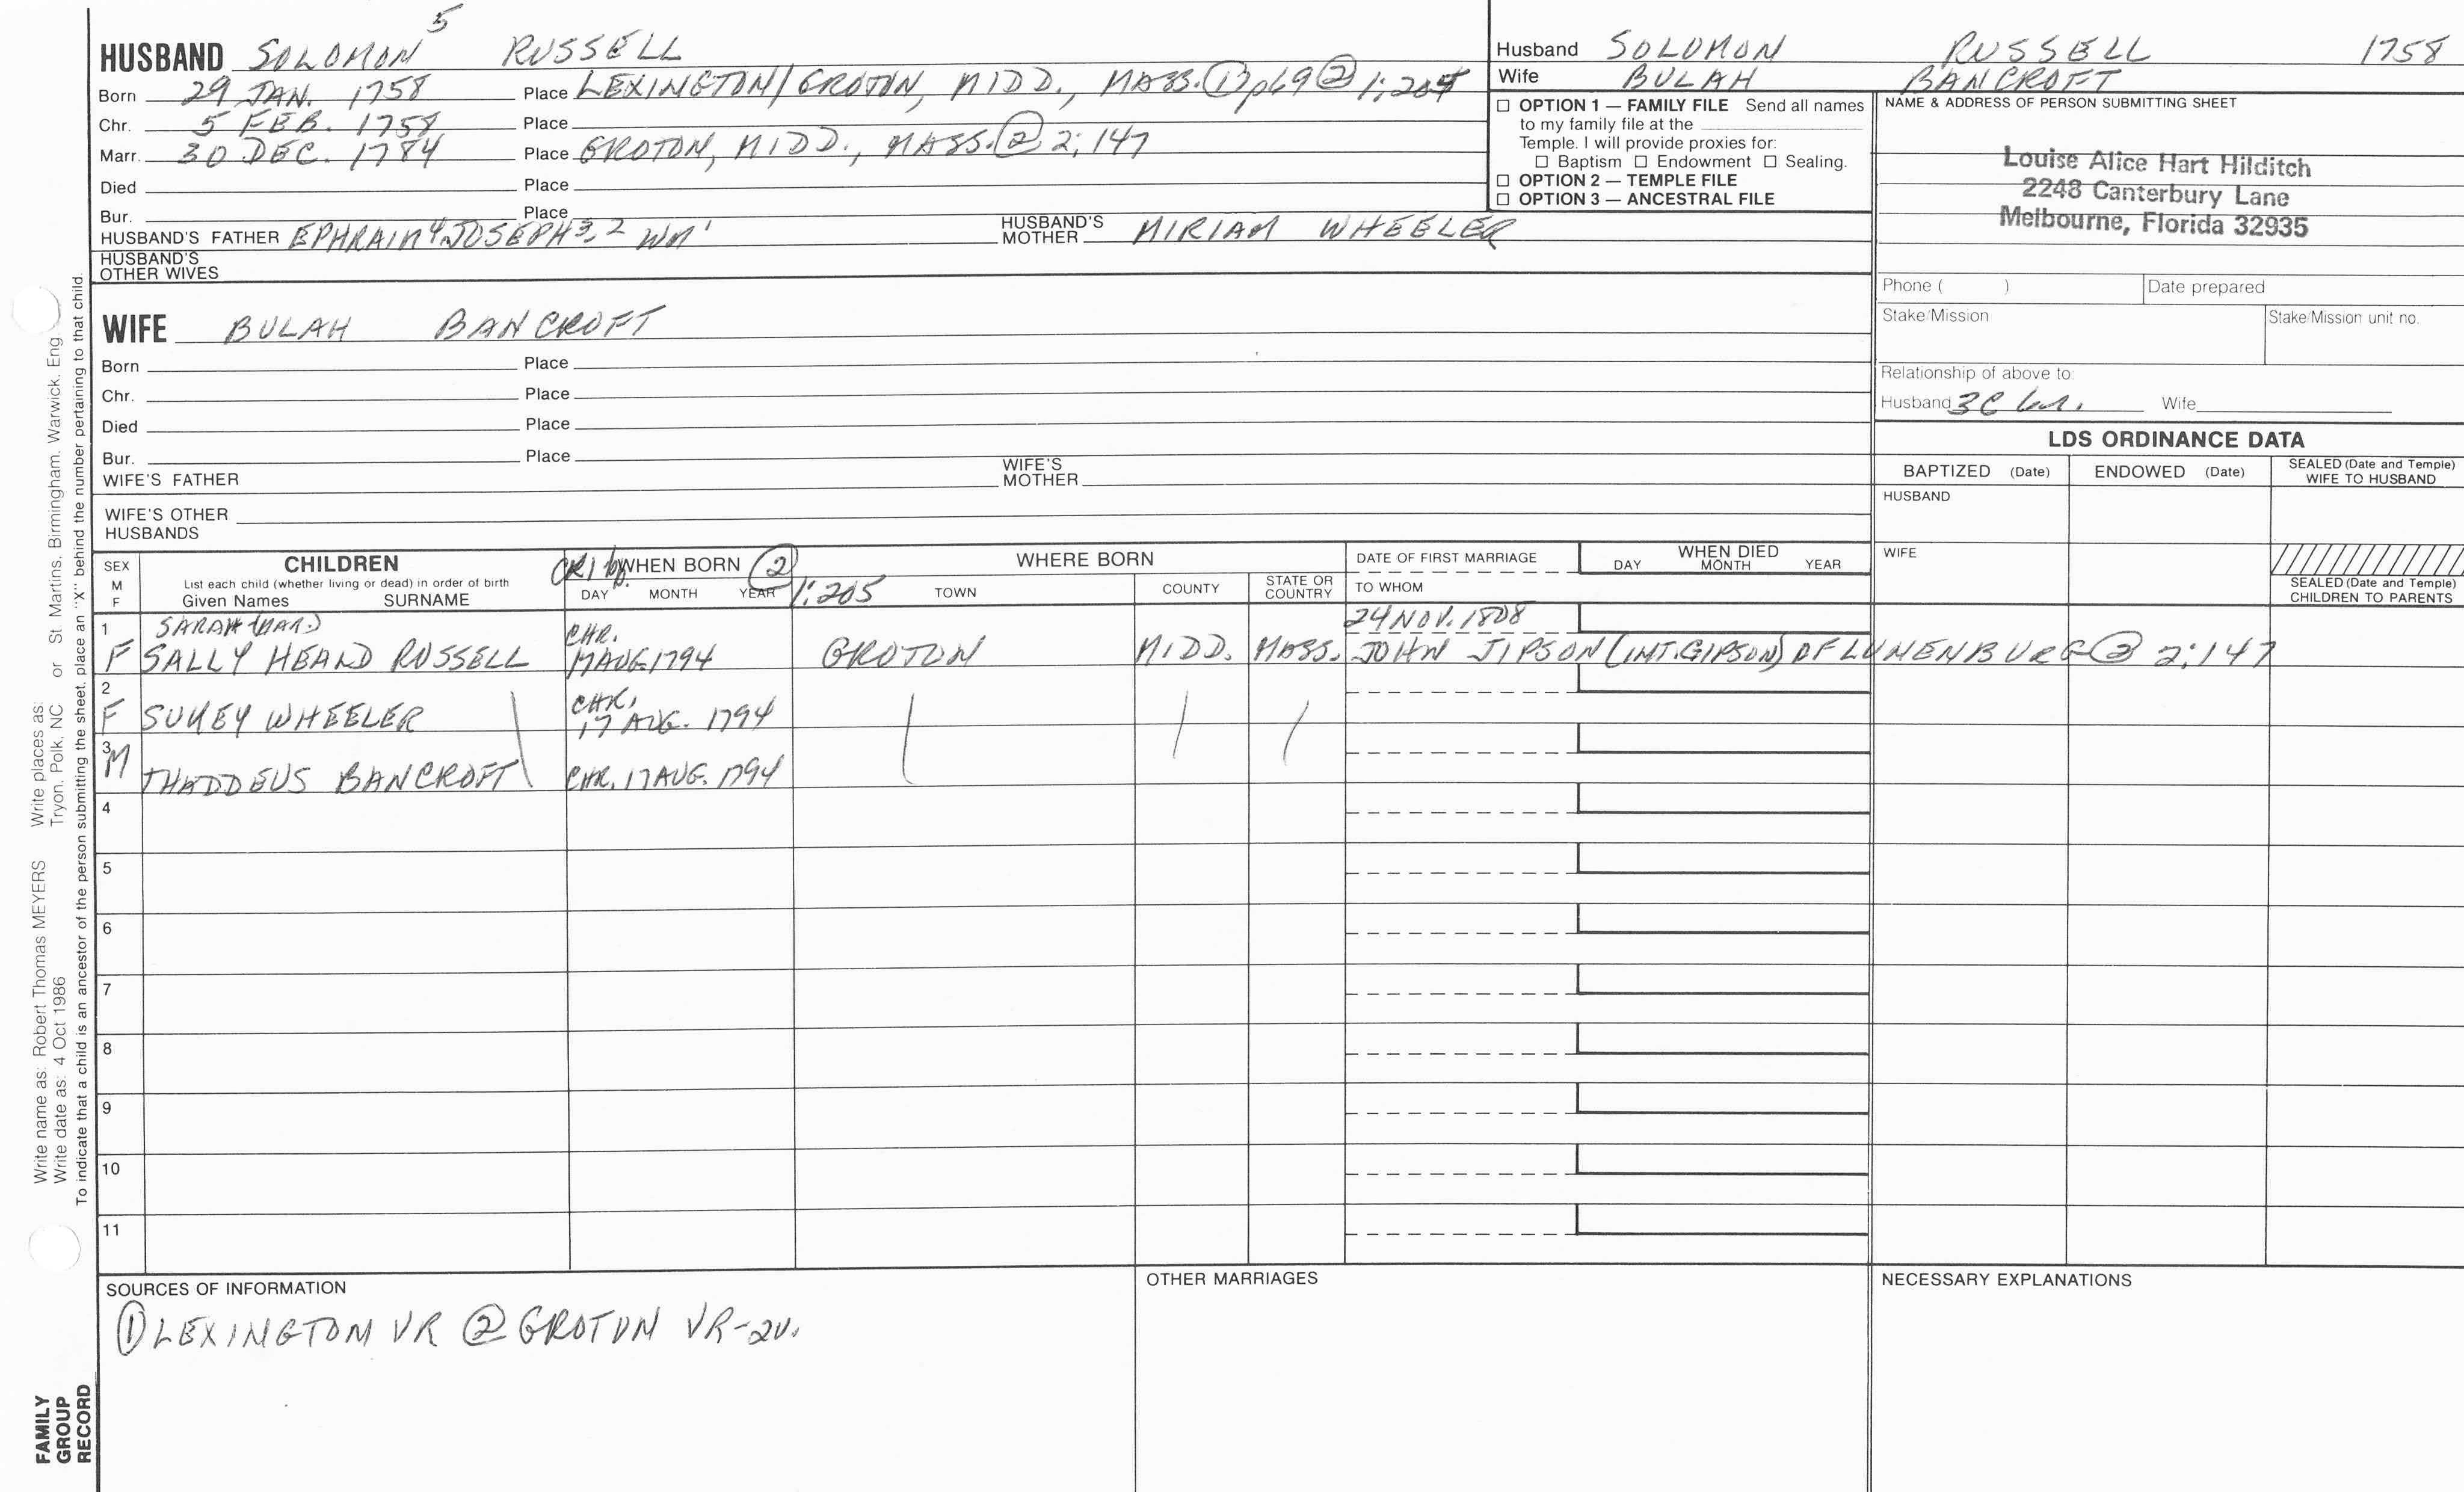 HUSBAND SOLOMON 5 RUSSELL
Born 29 JAN. 1758 Place LEXINGTON/GROTON, MIDD., MASS. ① p69 ② 1:204
Chr. 5 FEB. 1758 Place
Marr. 30 DEC. 1784 Place GROTON, MIDD., MASS. ② 2:147
Died Place
Bur. Place
HUSBAND'S FATHER EPHRAIM 4 JOSEPH 3,2 WM 1 HUSBAND'S MOTHER MIRIAM WHEELER
HUSBAND'S OTHER WIVES
WIFE BULAH BANCROFT
Born Place
Chr. Place
Died Place
Bur. Place
WIFE'S FATHER WIFE'S MOTHER
WIFE'S OTHER HUSBANDS
Husband SOLOMON RUSSELL 1758
Wife BULAH BANCROFT
☐ OPTION 1 — FAMILY FILE Send all names
to my family file at the
Temple. I will provide proxies for:
☐ Baptism ☐ Endowment ☐ Sealing.
☐ OPTION 2 — TEMPLE FILE
☐ OPTION 3 — ANCESTRAL FILE
NAME & ADDRESS OF PERSON SUBMITTING SHEET
Louise Alice Hart Hilditch
2248 Canterbury Lane
Melbourne, Florida 32935
Phone ( ) Date prepared
Stake/Mission Stake/Mission unit no.
Relationship of above to:
Husband 3C Wife
LDS ORDINANCE DATA
BAPTIZED (Date) ENDOWED (Date) SEALED (Date and Temple) WIFE TO HUSBAND
HUSBAND
WIFE
SEALED (Date and Temple)
CHILDREN TO PARENTS
SEX M F
CHILDREN
List each child (whether living or dead) in order of birth
Given Names SURNAME
CR1 WHEN BORN ② 1:205
DAY MONTH YEAR
WHERE BORN
TOWN COUNTY STATE OR COUNTRY
DATE OF FIRST MARRIAGE
TO WHOM
WHEN DIED
DAY MONTH YEAR
1 SARAH 24 NOV. 1808
F SALLY HEALD RUSSELL CHR. 17 AUG. 1794 GROTON MIDD. MASS. JOHN JIPSON (INT. GIPSON) OF LUNENBURG ② 2:147
2 F SUKEY WHEELER CHR. 17 AUG. 1794
3 M THADDEUS BANCROFT CHR. 17 AUG. 1794
4
5
6
7
8
9
10
11
SOURCES OF INFORMATION
① LEXINGTON VR ② GROTON VR-2V.
OTHER MARRIAGES
NECESSARY EXPLANATIONS
Write name as: Robert Thomas MEYERS Write places as: St. Martins, Birmingham, Warwick, Eng.
Write date as: 4 Oct 1986 Tryon, Polk, NC or
To indicate that a child is an ancestor of the person submitting the sheet, place an "X" behind the number pertaining to that child.
FAMILY
GROUP
RECORD